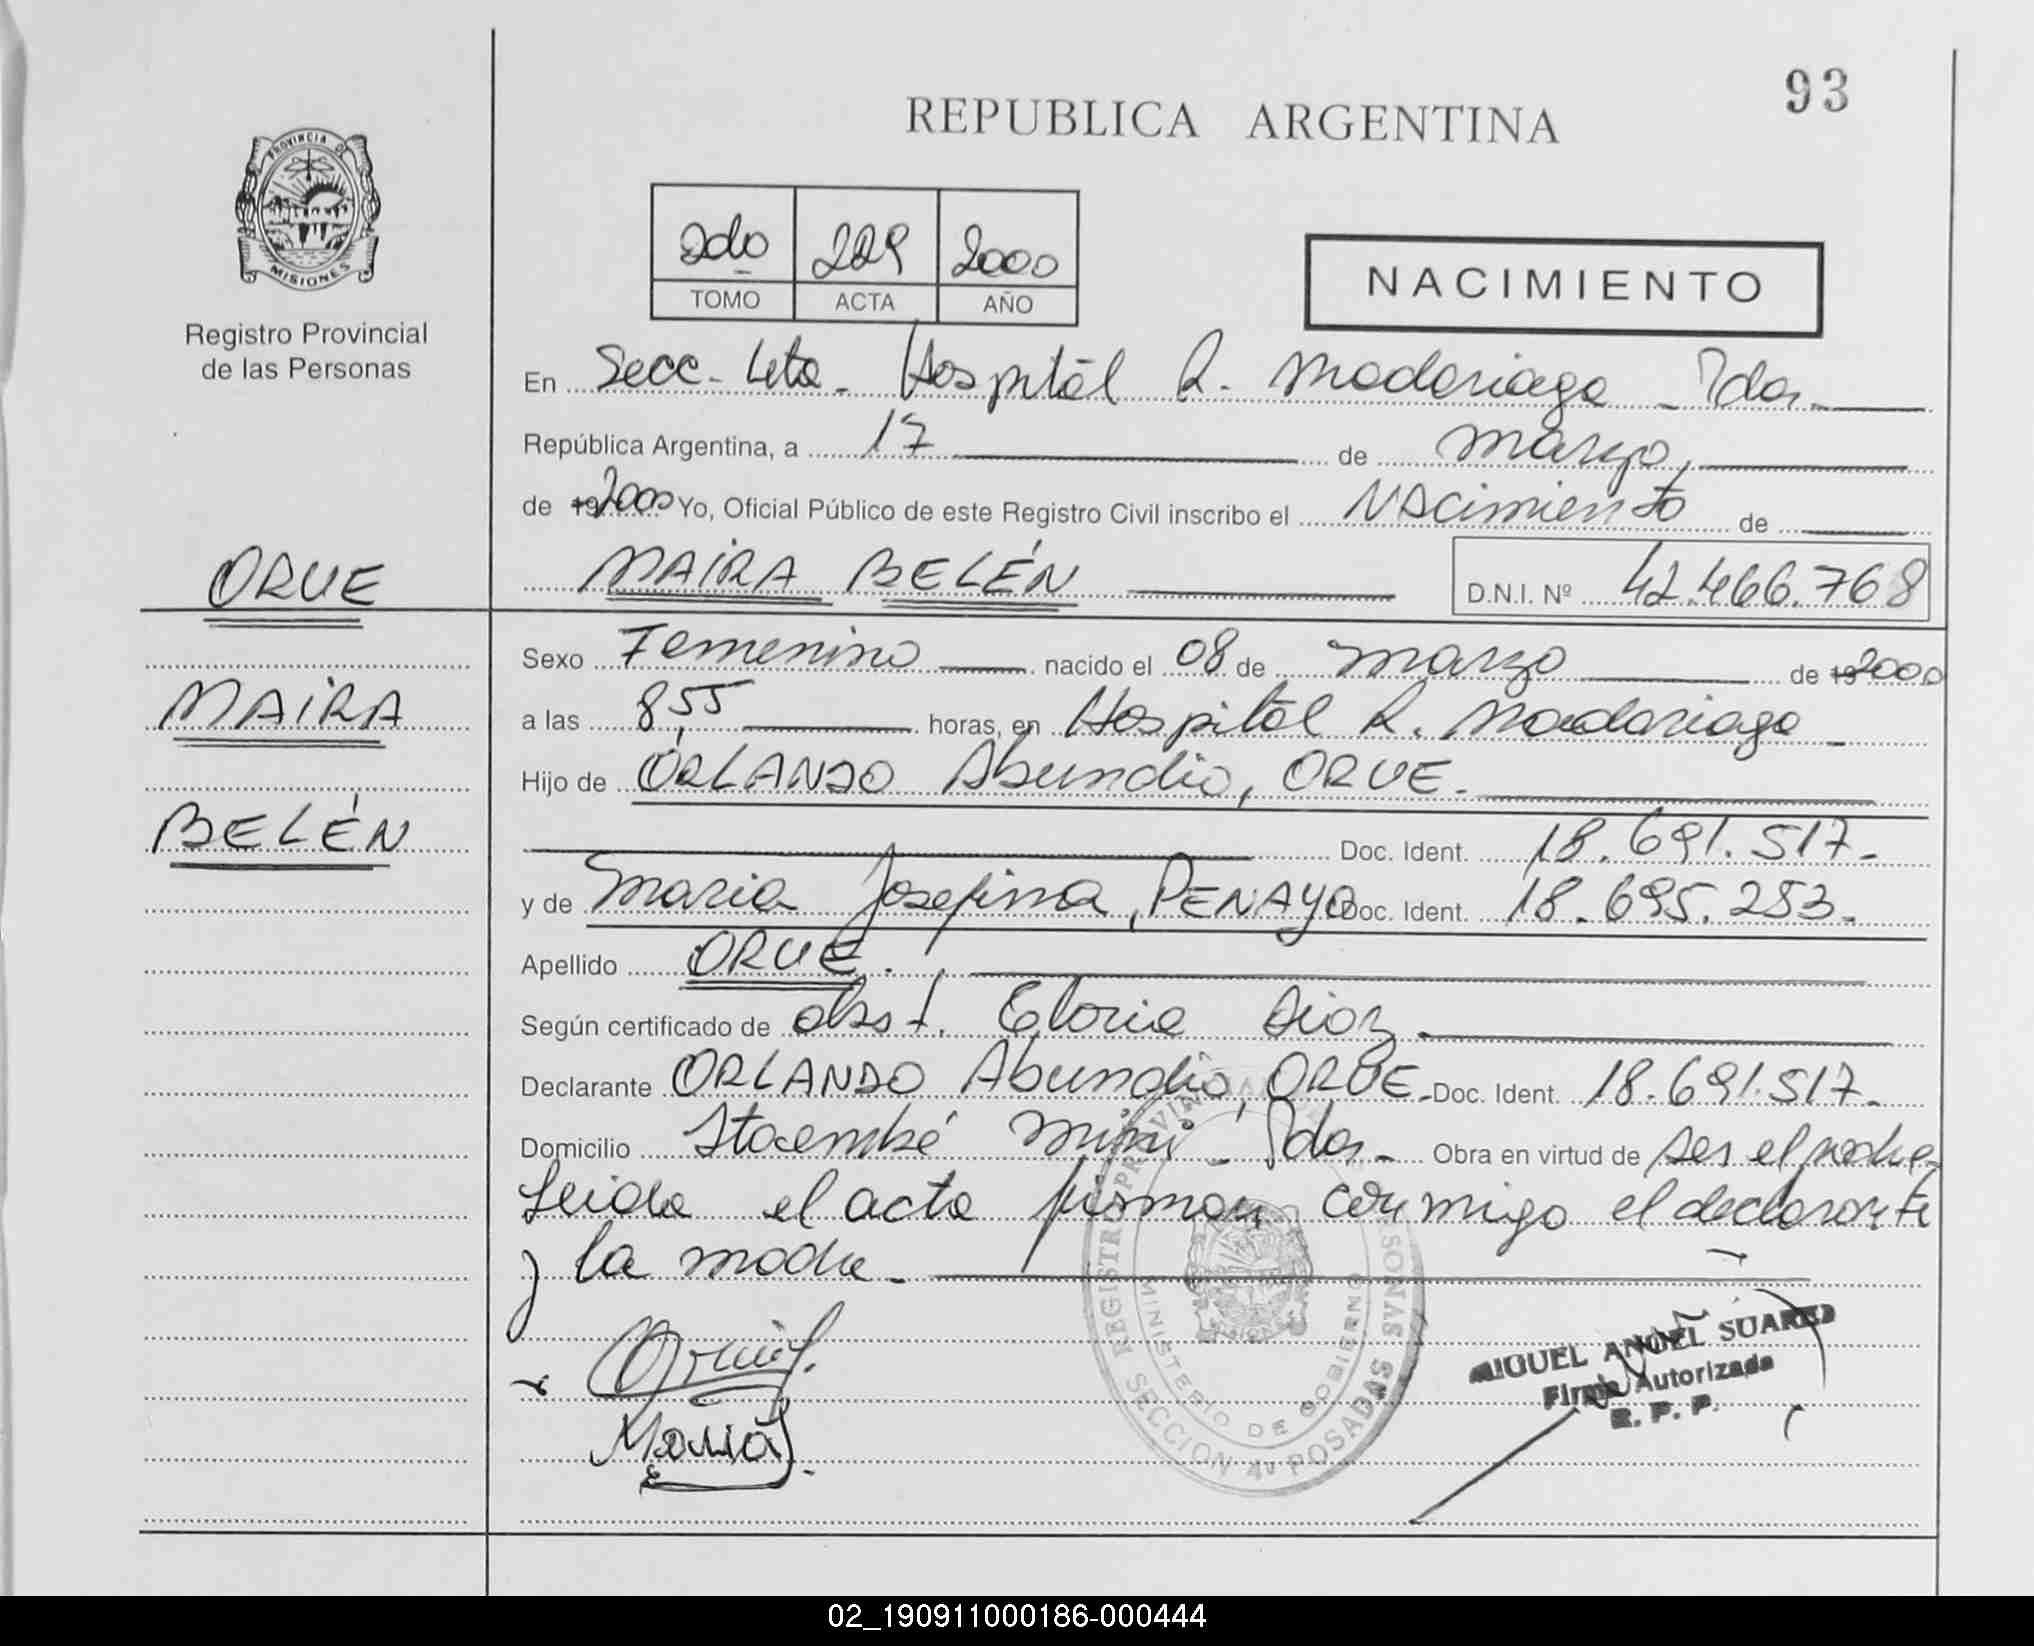 93
REPUBLICA ARGENTINA
PROVINCIA DE
MISIONES
Registro Provincial
de las Personas
2do 229 2000
TOMO ACTA AÑO
NACIMIENTO
En Secc. 4ta. Hospital R. Madariaga - Pdas.
República Argentina, a 17 de Marzo,
de 19 2000 Yo, Oficial Público de este Registro Civil inscribo el NAcimiento de
ORUE
MAIRA BELÉN D.N.I. Nº 42.466.768
Sexo Femenino nacido el 08 de Marzo de 19 2000
MAIRA
a las 8,55 horas, en Hospital R. Madariaga -
Hijo de ORLANDO Abundio, ORUE.
BELÉN
Doc. Ident. 18.691.517.-
y de Maria Josefina, PENAYO Doc. Ident. 18.695.253.-
Apellido ORUE.
Según certificado de obst. Gloria Diaz.
Declarante ORLANDO Abundio, ORUE. Doc. Ident. 18.691.517.-
Domicilio Itaembé Mini - Pdas. - Obra en virtud de ser el padre.
Leida el acta firman conmigo el declarante
y la madre.
REGISTRO PROVINCIAL DE LAS PERSONAS
MINISTERIO DE GOBIERNO
SECCION 4ª POSADAS
MIGUEL ANGEL SUAREZ
Firma Autorizada
R. P. P.
Maria
02_190911000186-000444